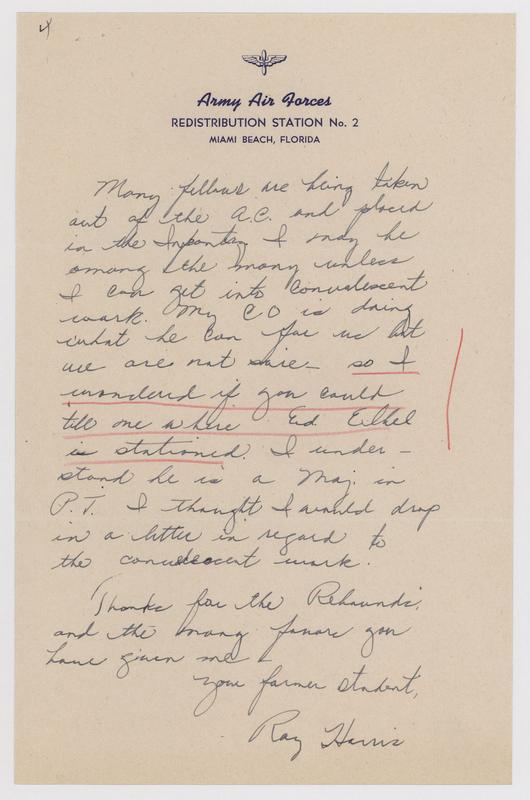 4
Army Air Forces
REDISTRIBUTION STATION No. 2
MIAMI BEACH, FLORIDA
Many fellows are being taken
out of the A.C. and placed
in the Infantry I may be
among the many unless
I can get into convalescent
work. My C O is doing
what he can for us but
we are not sure - so I
wondered if you could
tell me where Ed. Elbel
is stationed. I under -
stand he is a Maj. in
P.T. I thought I would drop
in a letter in regard to
the convalescent work.
Thanks for the Rebounds,
and the many favors you
have given me -
Your former student,
Ray Harris